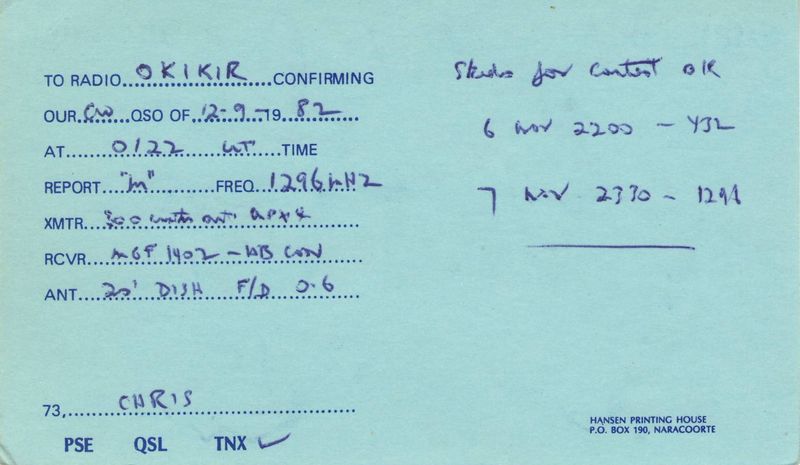 TO RADIO OK1KIR CONFIRMING
OUR CW QSO OF 12-9-1982
AT 0122 UT TIME
REPORT "M" FREQ 1296 MHZ
XMTR 300 watts out
RCVR MGF 1402 - WB CON
ANT 20' DISH F/D 0.6
73, CHRIS
PSE QSL TNX ✓
Skeds for Contest OK
6 Nov 2200 - 432
7 Nov 2330 - 1296
HANSEN PRINTING HOUSE
P.O. BOX 190, NARACOORTE